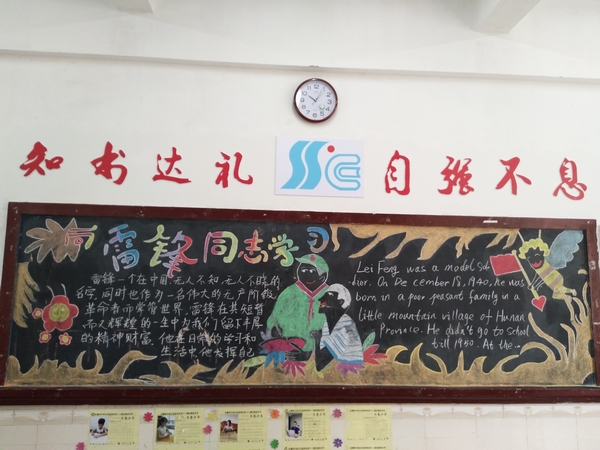 知书达礼
自强不息
向雷锋同志学习
雷锋一个在中国无人不知,无人不晓的
名字,同时也作为一名伟大的无产阶级
革命者而荣誉世界,雷锋在其短暂
而又辉煌的一生中为我们留下丰厚
的精神财富,他在日常的学习和
生活中他发挥自
Lei Feng was a model sol-
dier. On De cember 18, 1940, he was
born in a poor peasant family in a
little mountain village of Hunan
Province. He didn't go to school
till 1950. At the...